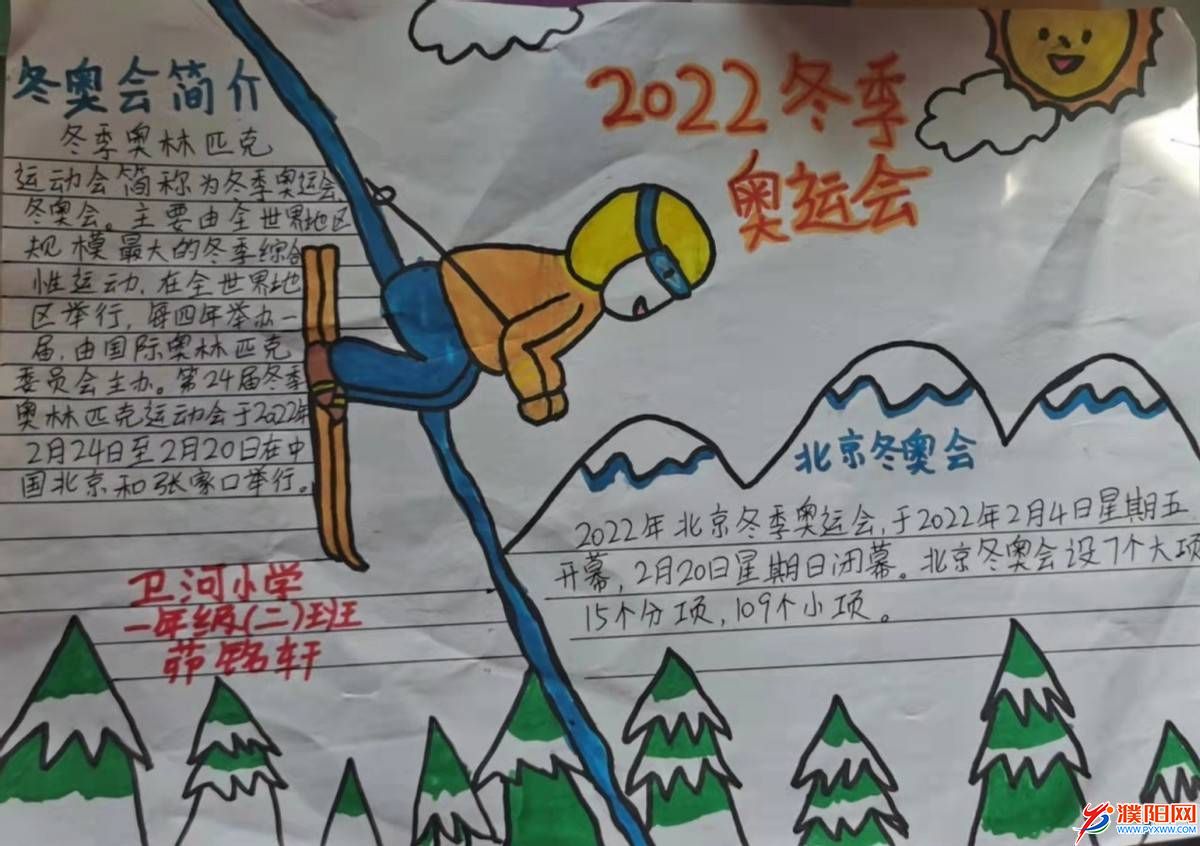 冬奥会简介
冬季奥林匹克
运动会简称为冬季奥运会
冬奥会。主要由全世界地区
规模最大的冬季综合
性运动,在全世界地
区举行,每四年举办一
届,由国际奥林匹克
委员会主办。第24届冬季
奥林匹克运动会于2022年
2月24日至2月20日在中
国北京和张家口举行。
卫河小学
一年级(二)班
茆铭轩
2022冬季
奥运会
北京冬奥会
2022年北京冬季奥运会,于2022年2月4日星期五
开幕,2月20日星期日闭幕。北京冬奥会设7个大项
15个分项,109个小项。
濮阳网
WWW.PYXWW.COM